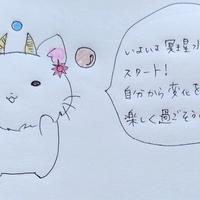 いよいよ冥王星水
スタート!
自分から変化を
楽しく過ごそう